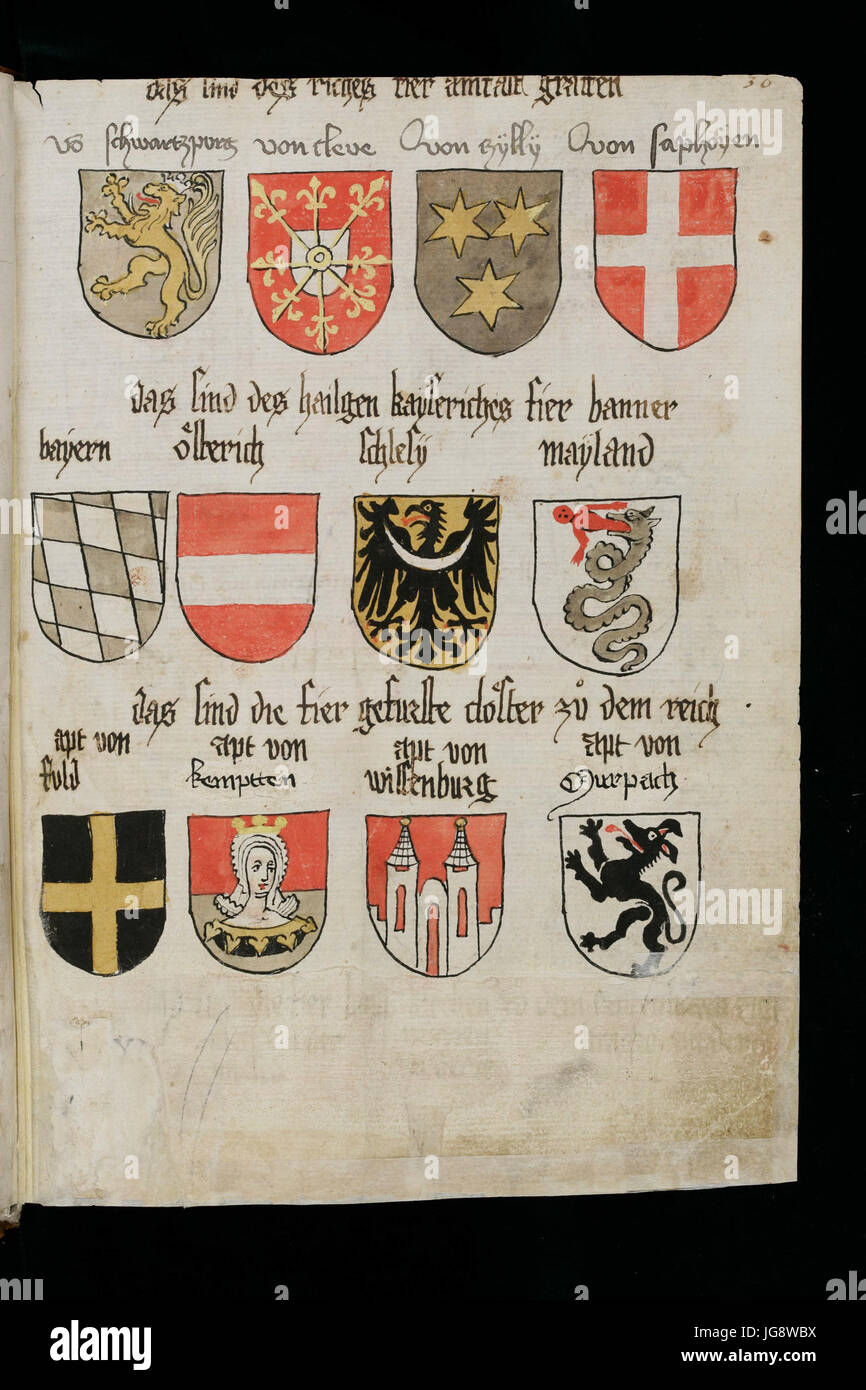 30
das sind des riches fier amtält graffen
vo schwartzpurg von cleve von zylly von saphoyen
das sind des hailgen kayserichs fier banner
bayern österich schlesy mayland
das sind die fier gefurste closter zů dem reich
apt von apt von apt von apt von
fuld kemptten wissenburg Murpach
alamy stock photo
JG8WBX
www.alamy.com